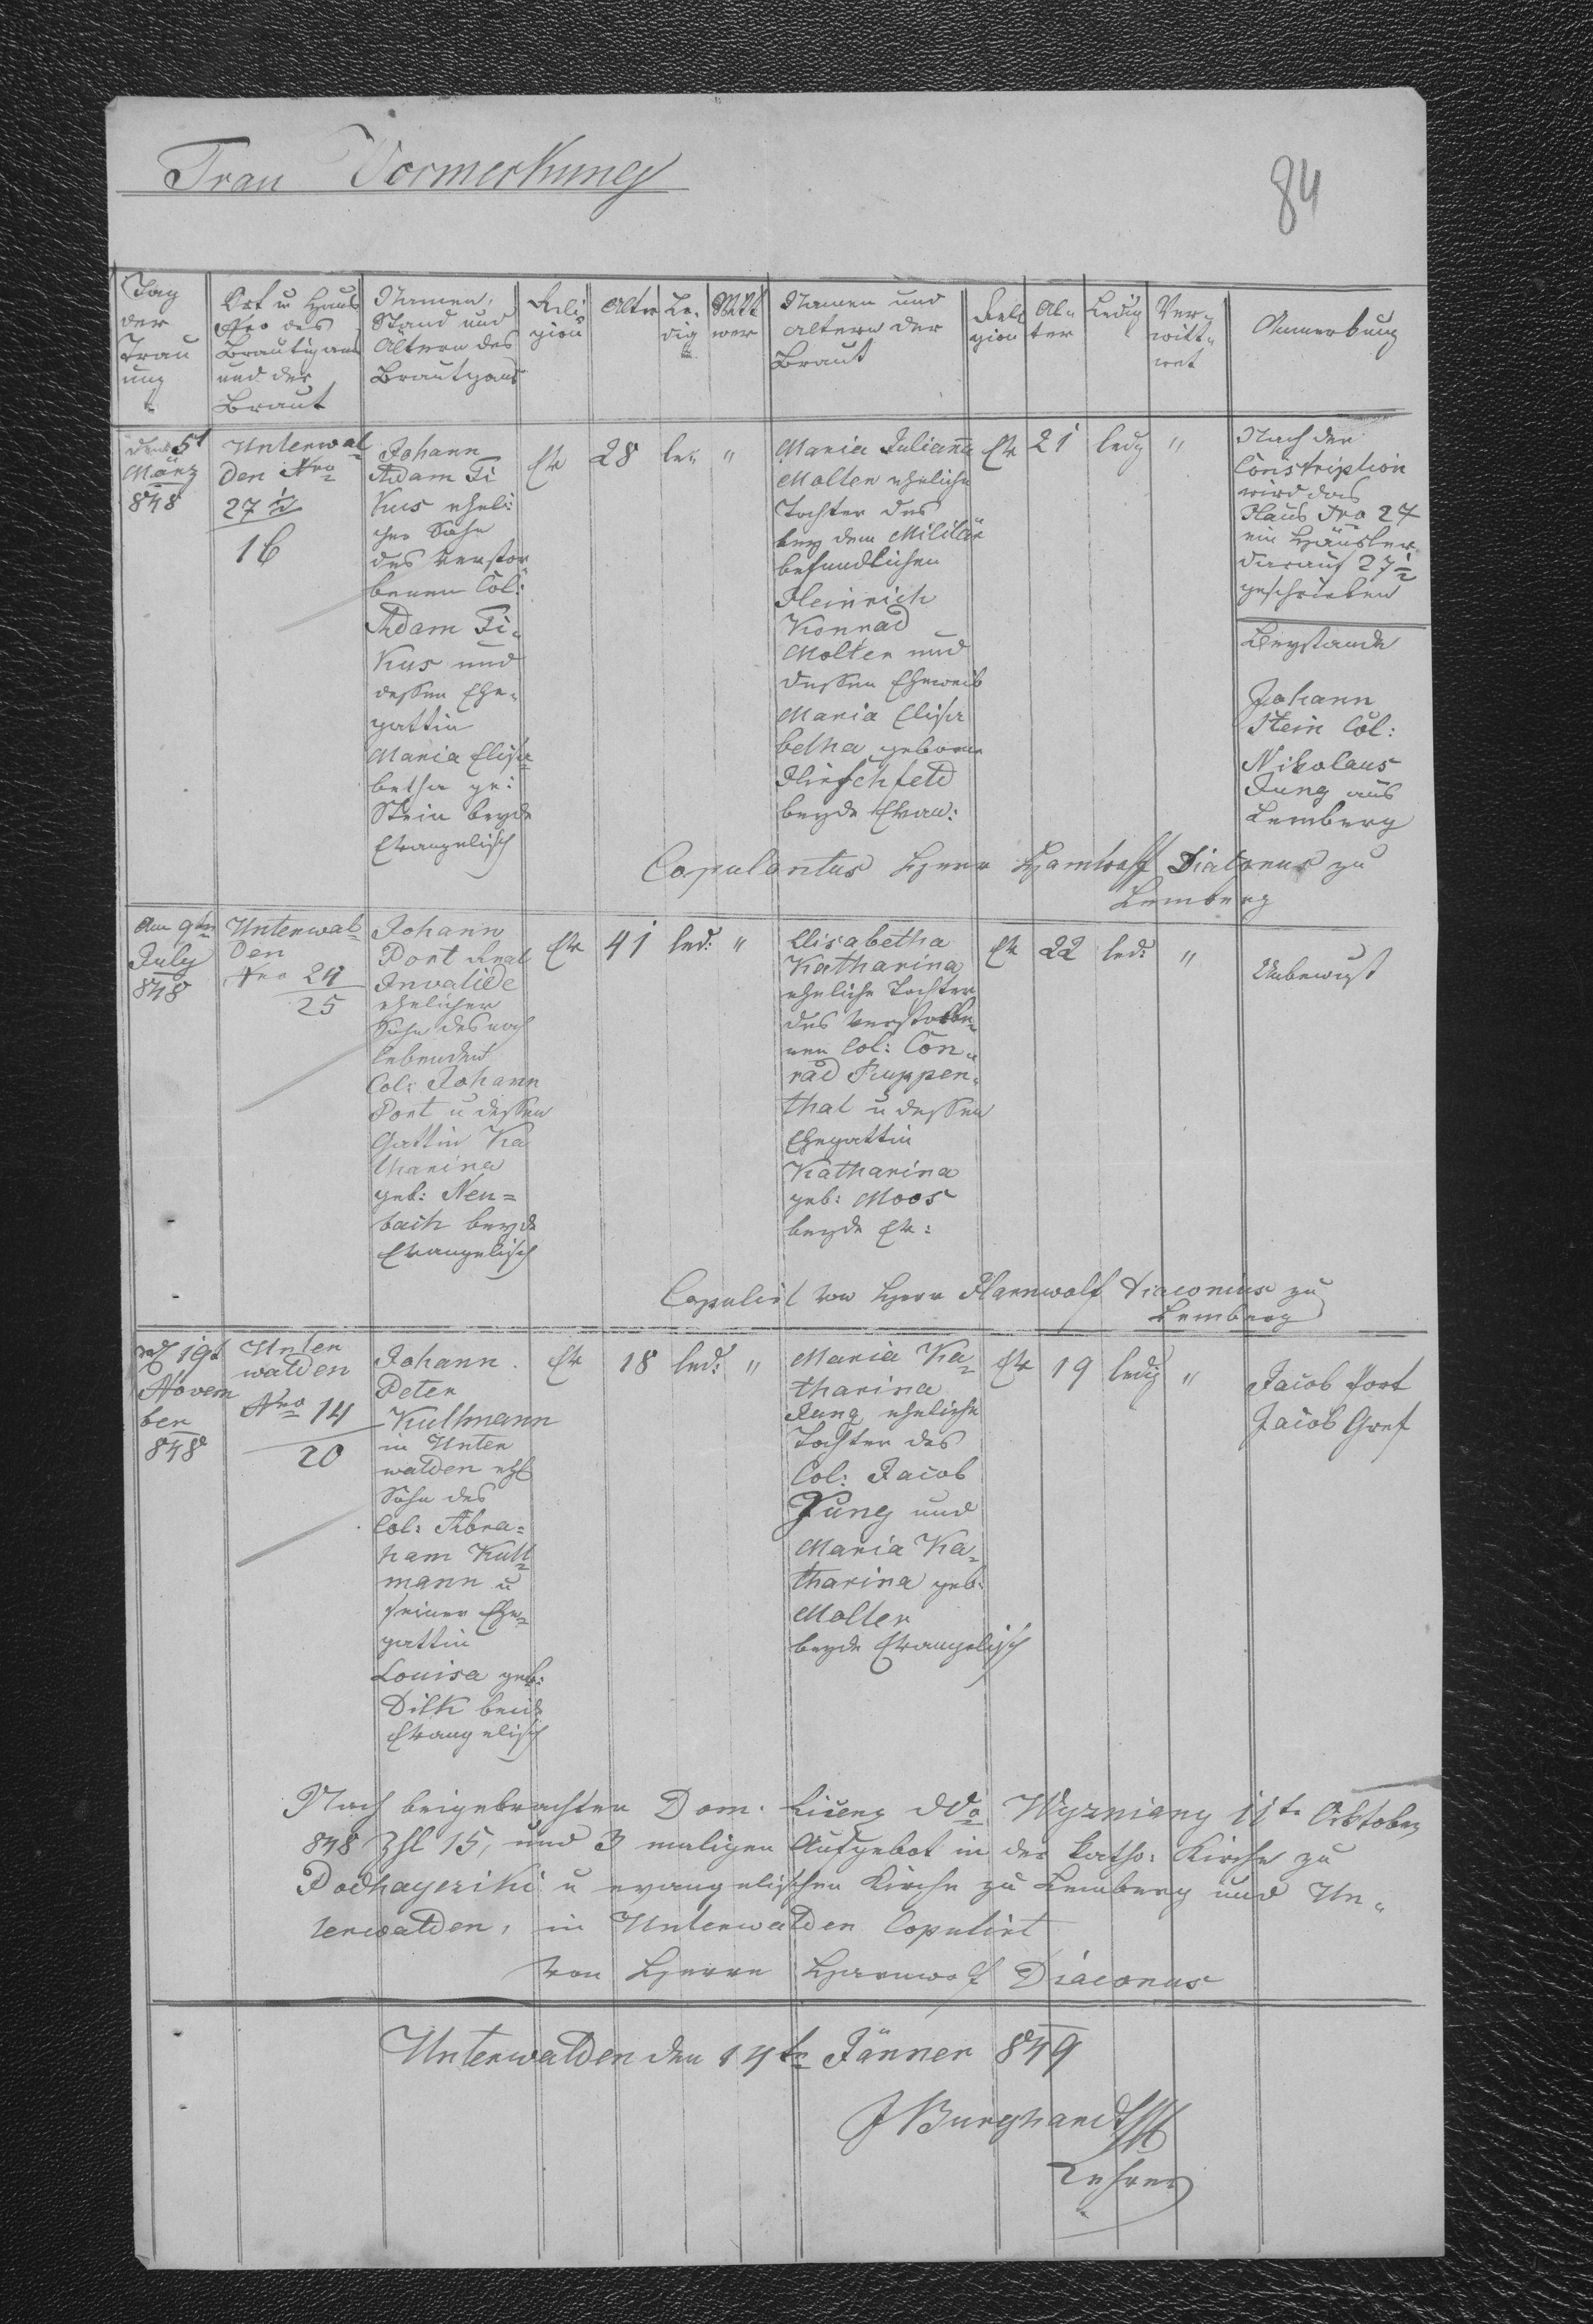 Trau Vormerkung
84
Tag
der
Trau
ung
Ort u Haus
Nro des
Brautigams
und der
Braut
Namen,
Stand und
Ältern des
Brautgams
Reli
gion
Alter
Le-
dig
Witt
wer
Namen und
altern der
Braut
Reli
gion
Al-
ter
Ledig
Ver-
witt-
wet
Anmerkung
den 5t
März
848
Unterwal
den Nro
27 ½
16
Johann
Adam Fi
kus eheli:
cher Sohn
des verstor
benen Col:
Adam Fi-
kus und
dessen Ehe-
gattin
Maria Elisa-
betha ge:
Stein beyde
Evangelisch
Ev
28
le:
"
Maria Julianna
Molter eheliche
Tochter des
bey dem Militär
befindlichen
Heinrich
Konrad
Molter und
dessen Eheweib
Maria Elisa
betha geborne
Hirschfeld
beyde Evan:
Ev
21
ledig
"
Nach der
Conskription
wird das
Haus Nro 27
ein Häusler
darauf 27 ½
geschrieben
Beystande
Johann
Stein Col:
Nikolaus
Jung aus
Lemberg
Copulantus Herr Diakonus zu
Lemberg
Am 9ten
July
848
Unterwal-
den
Nro 24
25
Johann
Port
Invalide
ehelicher
Sohn des noch
lebenden
Col: Johann
Port u dessen
Gattin Ka
tharina
geb: Neu=
bach beyde
Evangelisch
Ev
41
led:
"
Elisabetha
Katharina
eheliche Tochter
des verstorbe-
nen Col: Con-
rad Ruppen-
thal u dessen
Ehegattin
Katharina
geb: Moos
beyde Ev:
Ev
22
led:
"
Unbewust
Copulirt von Herr Harnwolf Diaconus zu
Lemberg
19t
Novem
ber
848
Unter
walden
Nro 14
20
Johann
Peter
Kullmann
in Unter
walden ehl
Sohn des
Col: Abra=
ham Kull-
mann u
seiner Ehe-
gattin
Louisa geb:
Dilk beide
Evangelisch
Ev
18
led:
"
Maria Ka-
tharina
Jung eheliche
Tochter des
Col: Jacob
Jung und
Maria Ka-
tharina geb:
Molter
beyde Evangelisch
Ev
19
ledig
"
Jacob Port
Jacob Gref
Nach beigebrachter Dom. Licenz ddo Wyzniany 11te Oktober
848 Zhl 15, und 3 maligen Aufgebot in der kath: Kirche zu
Podhaycziki u evangelischen Kirche zu Lemberg und Un-
terwalden, in Unterwalden Copulirt
von Herrn Harnwolf Diaconus
Unterwalden den 14te Jänner 849
J Burghardt
Lehrer